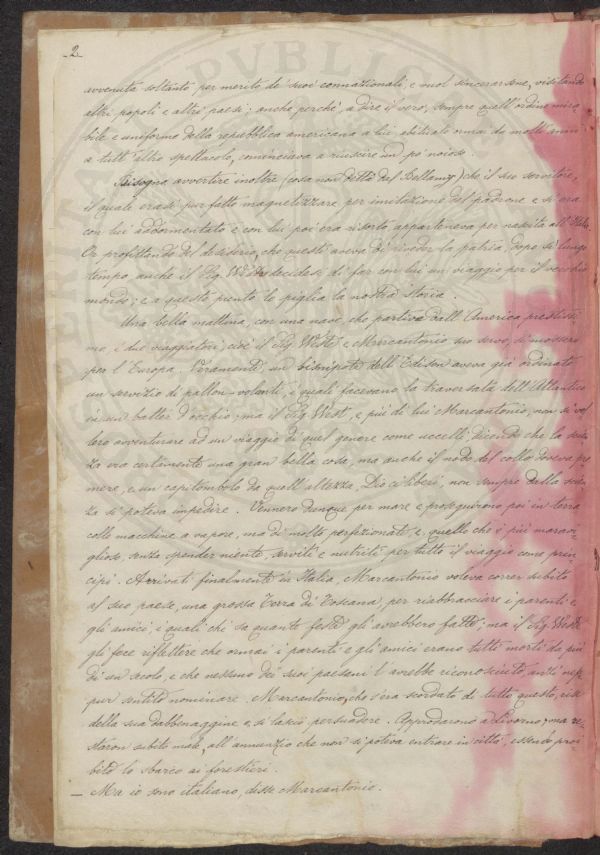 2
avvenuta soltanto per merito de' suoi connazionali, e volle sincerarsene, visitando
altri popoli e altri paesi; anche perchè, a dire il vero, sempre quell'ordine mira-
bile e uniforme della repubblica americana a lui, abituato ormai da molti anni
a tutt'altro spettacolo, cominciava a riuscire un po' noioso.
Bisogna avvertire inoltre (cosa non detta dal Bellamy) che il suo servitore,
il quale erasi pur fatto magnetizzare per imitazione del padrone e si era
con lui addormentato e con lui poi era risorto, apparteneva per nascita all'Italia.
Or profittando del desiderio, che questi aveva di riveder la patria, dopo sì lungo
tempo, anche il Sig. West decidesi di far con lui un viaggio per il vecchio
mondo; e a questo punto lo piglia la nostra istoria.
Una bella mattina, con una nave, che partiva dall'America prestissi-
mo, i due viaggiatori, cioè il Sig. West, e Marcantonio suo servo, si mossero
per l'Europa. Veramente, un bisnipote dell'Edison aveva già ordinato
un servizio di pallon-volanti, i quali facevano la traversata dell'Atlantico
in un batter d'occhio; ma il Sig. West, e più di lui Marcantonio, non si vol-
lero avventurare ad un viaggio di quel genere come uccelli, dicendo che la scien-
za era certamente una gran bella cosa, ma anche il nodo del collo doveva pre-
mere, e un capitombolo da quell'altezza, Dio ci liberi, non sempre dalla scien-
za si poteva impedire. Vennero dunque per mare e proseguirono poi in terra
colle macchine a vapore, ma di molto perfezionate, e, quello che è più maravi-
glioso, senza spender niente, serviti e nutriti per tutto il viaggio come prin-
cipi. Arrivati finalmente in Italia, Marcantonio voleva correr subito
al suo paese, una grossa Terra di Toscana, per riabbracciare i parenti e
gli amici, i quali chi sa quante feste gli avrebbero fatte; ma il Sig. West
gli fece riflettere che ormai i parenti e gli amici erano tutti morti da più
di un secolo, e che nessuno dei suoi paesani l'avrebbe riconosciuto, anzi nep-
pur sentito nominare. Marcantonio, che s'era scordato di tutto questo, rise
della sua dabbenaggine e si lasciò persuadere. Approdarono a Livorno; ma re-
staron subito male, all'annunzio che non si poteva entrare in città, essendo proi-
bito lo sbarco ai forestieri.
— Ma io sono italiano, disse Marcantonio.